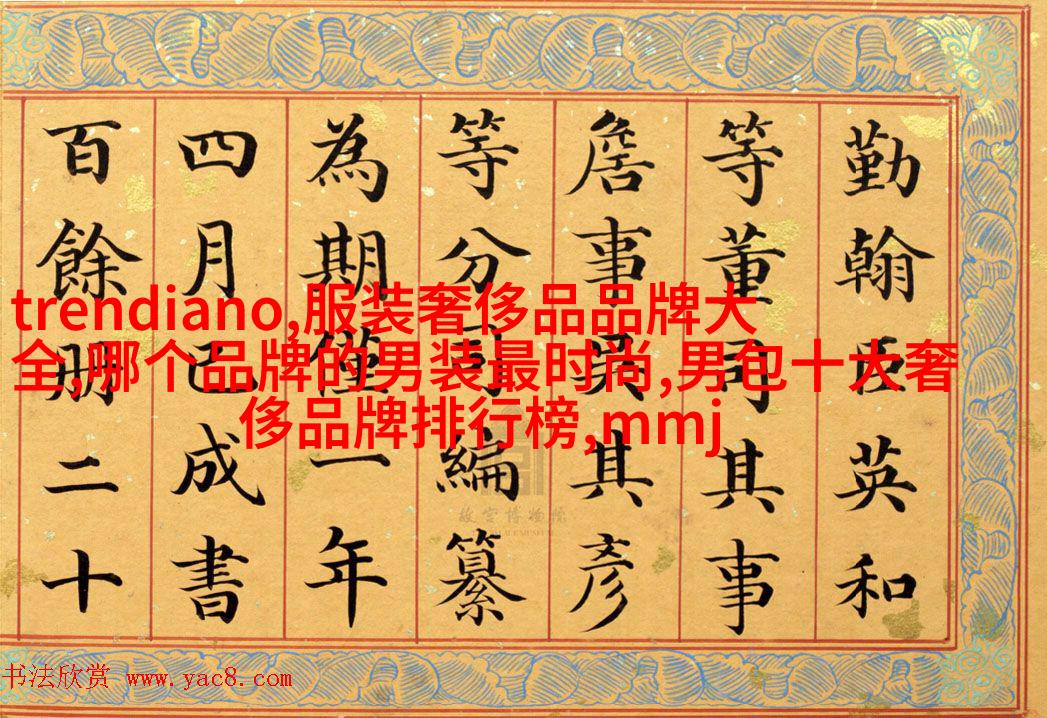 勤翰臣英和
等董司其事
詹事吳其彥
等分司編纂
為期僅一年
四月已成書
百餘冊二十
trendiano,服装奢侈品品牌大
全,哪个品牌的男装最时尚,男包十大奢
侈品牌排行榜,mmj
故宫博物院
书法欣赏 www.yac8.com